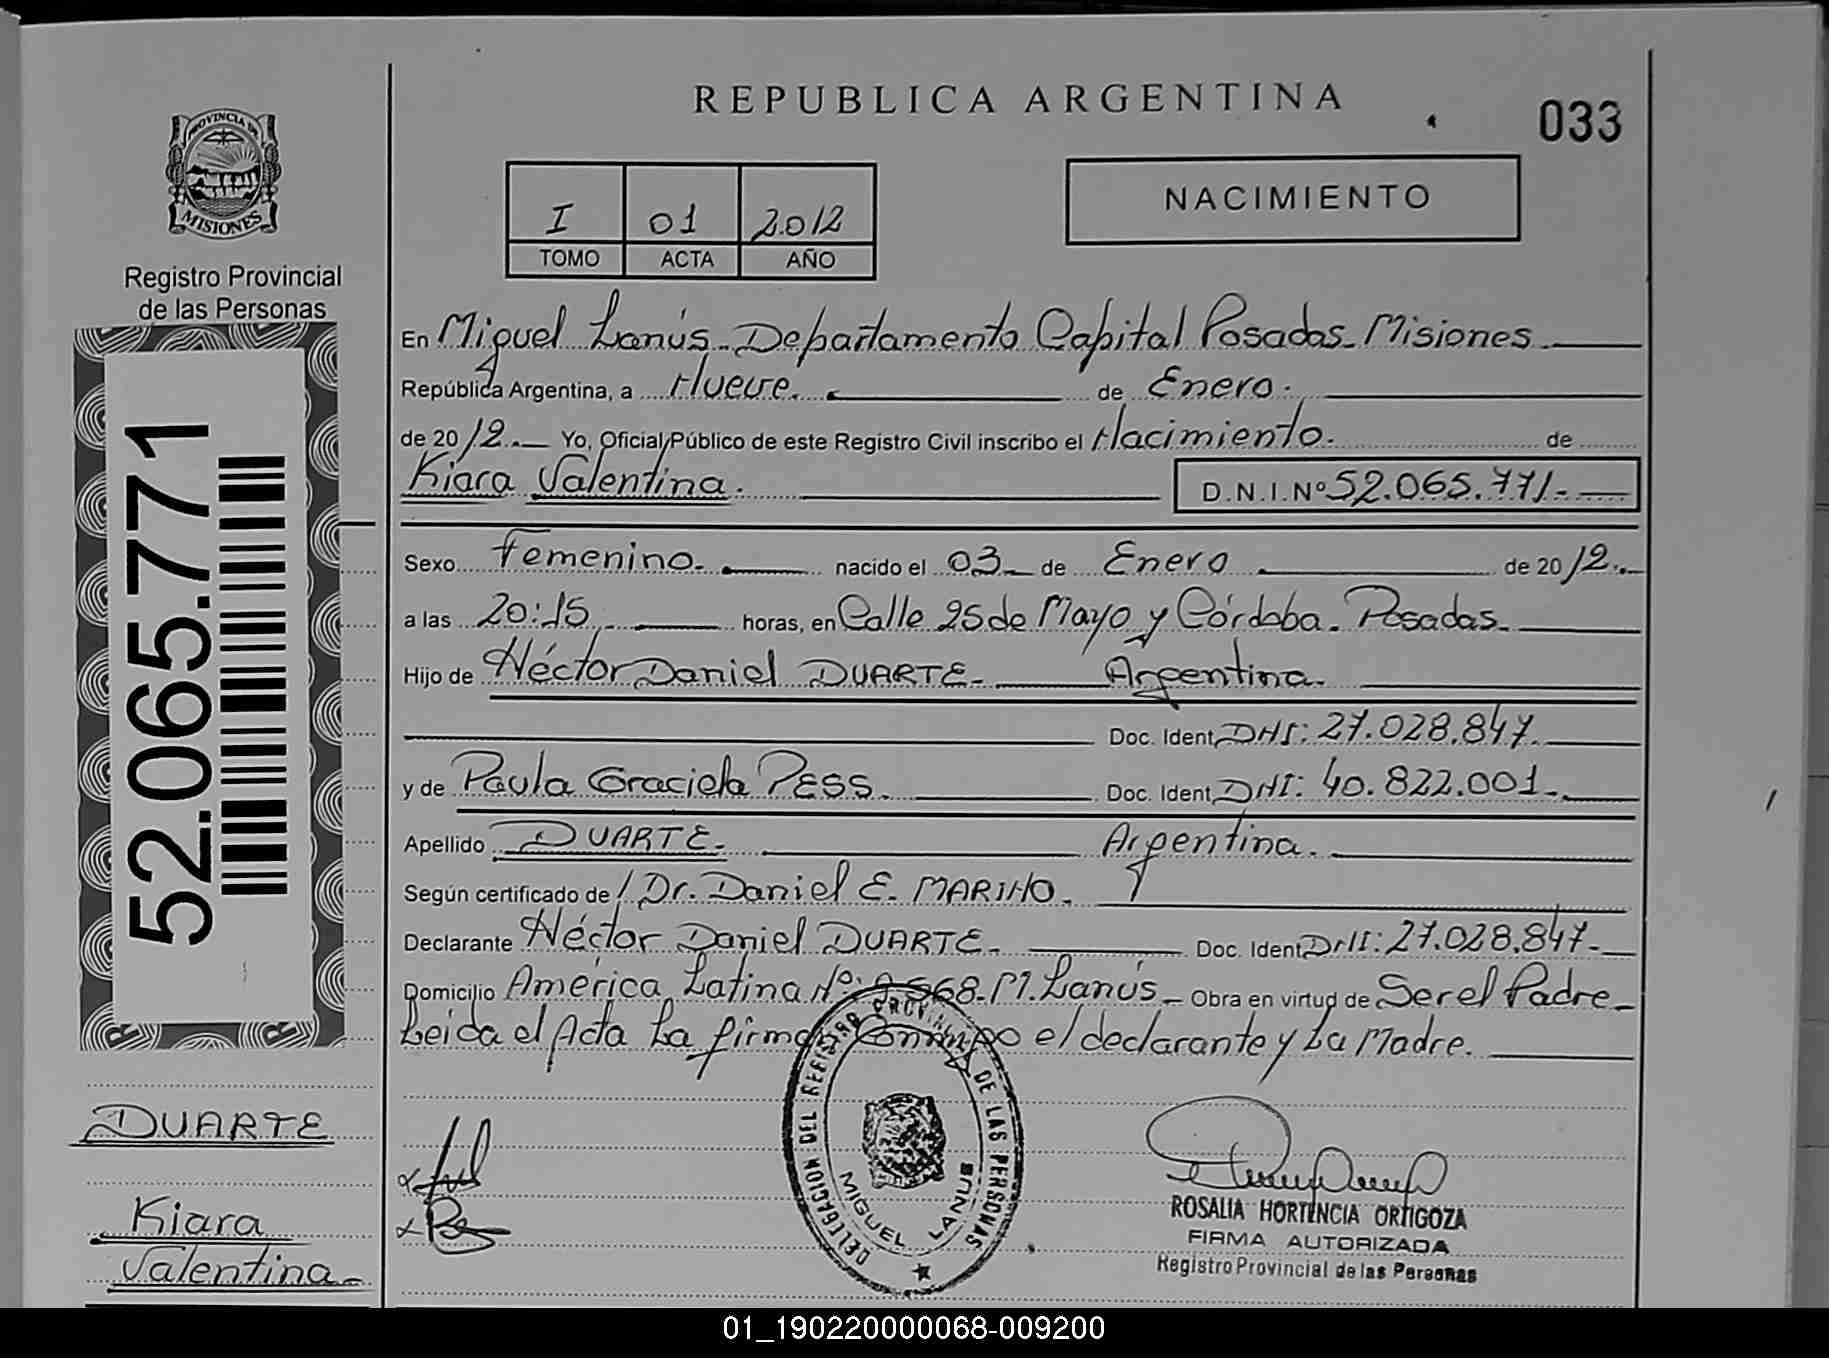 REPUBLICA ARGENTINA
033
PROVINCIA DE
MISIONES
Registro Provincial
de las Personas
NACIMIENTO
I 01 2012
TOMO ACTA AÑO
En Miguel Lanús. Departamento Capital Posadas. Misiones.
República Argentina, a Nueve. de Enero.
de 2012. Yo, Oficial Público de este Registro Civil inscribo el Nacimiento. de
Kiara Valentina. D.N.I.Nº 52.065.771.
52.065.771
Sexo Femenino. nacido el 03 de Enero de 2012.
a las 20:15 horas, en Calle 25 de Mayo y Córdoba. Posadas.
Hijo de Héctor Daniel DUARTE. Argentina.
Doc. Ident. DNI: 27.028.847.
y de Paula Graciela PESS. Doc. Ident. DNI: 40.822.001.
Apellido DUARTE. Argentina.
Según certificado de / Dr. Daniel E. MARINO.
Declarante Héctor Daniel DUARTE. Doc. Ident. DNI: 27.028.847.
Domicilio América Latina Nº: 568. M. Lanús. Obra en virtud de Ser el Padre.
Leida el Acta La firma Conmigo el declarante y La Madre.
DUARTE
Kiara
Valentina.
DELEGACION DEL REGISTRO PROVINCIAL DE LAS PERSONAS
MIGUEL LANUS
ROSALIA HORTENCIA ORTIGOZA
FIRMA AUTORIZADA
Registro Provincial de las Personas
01_190220000068-009200